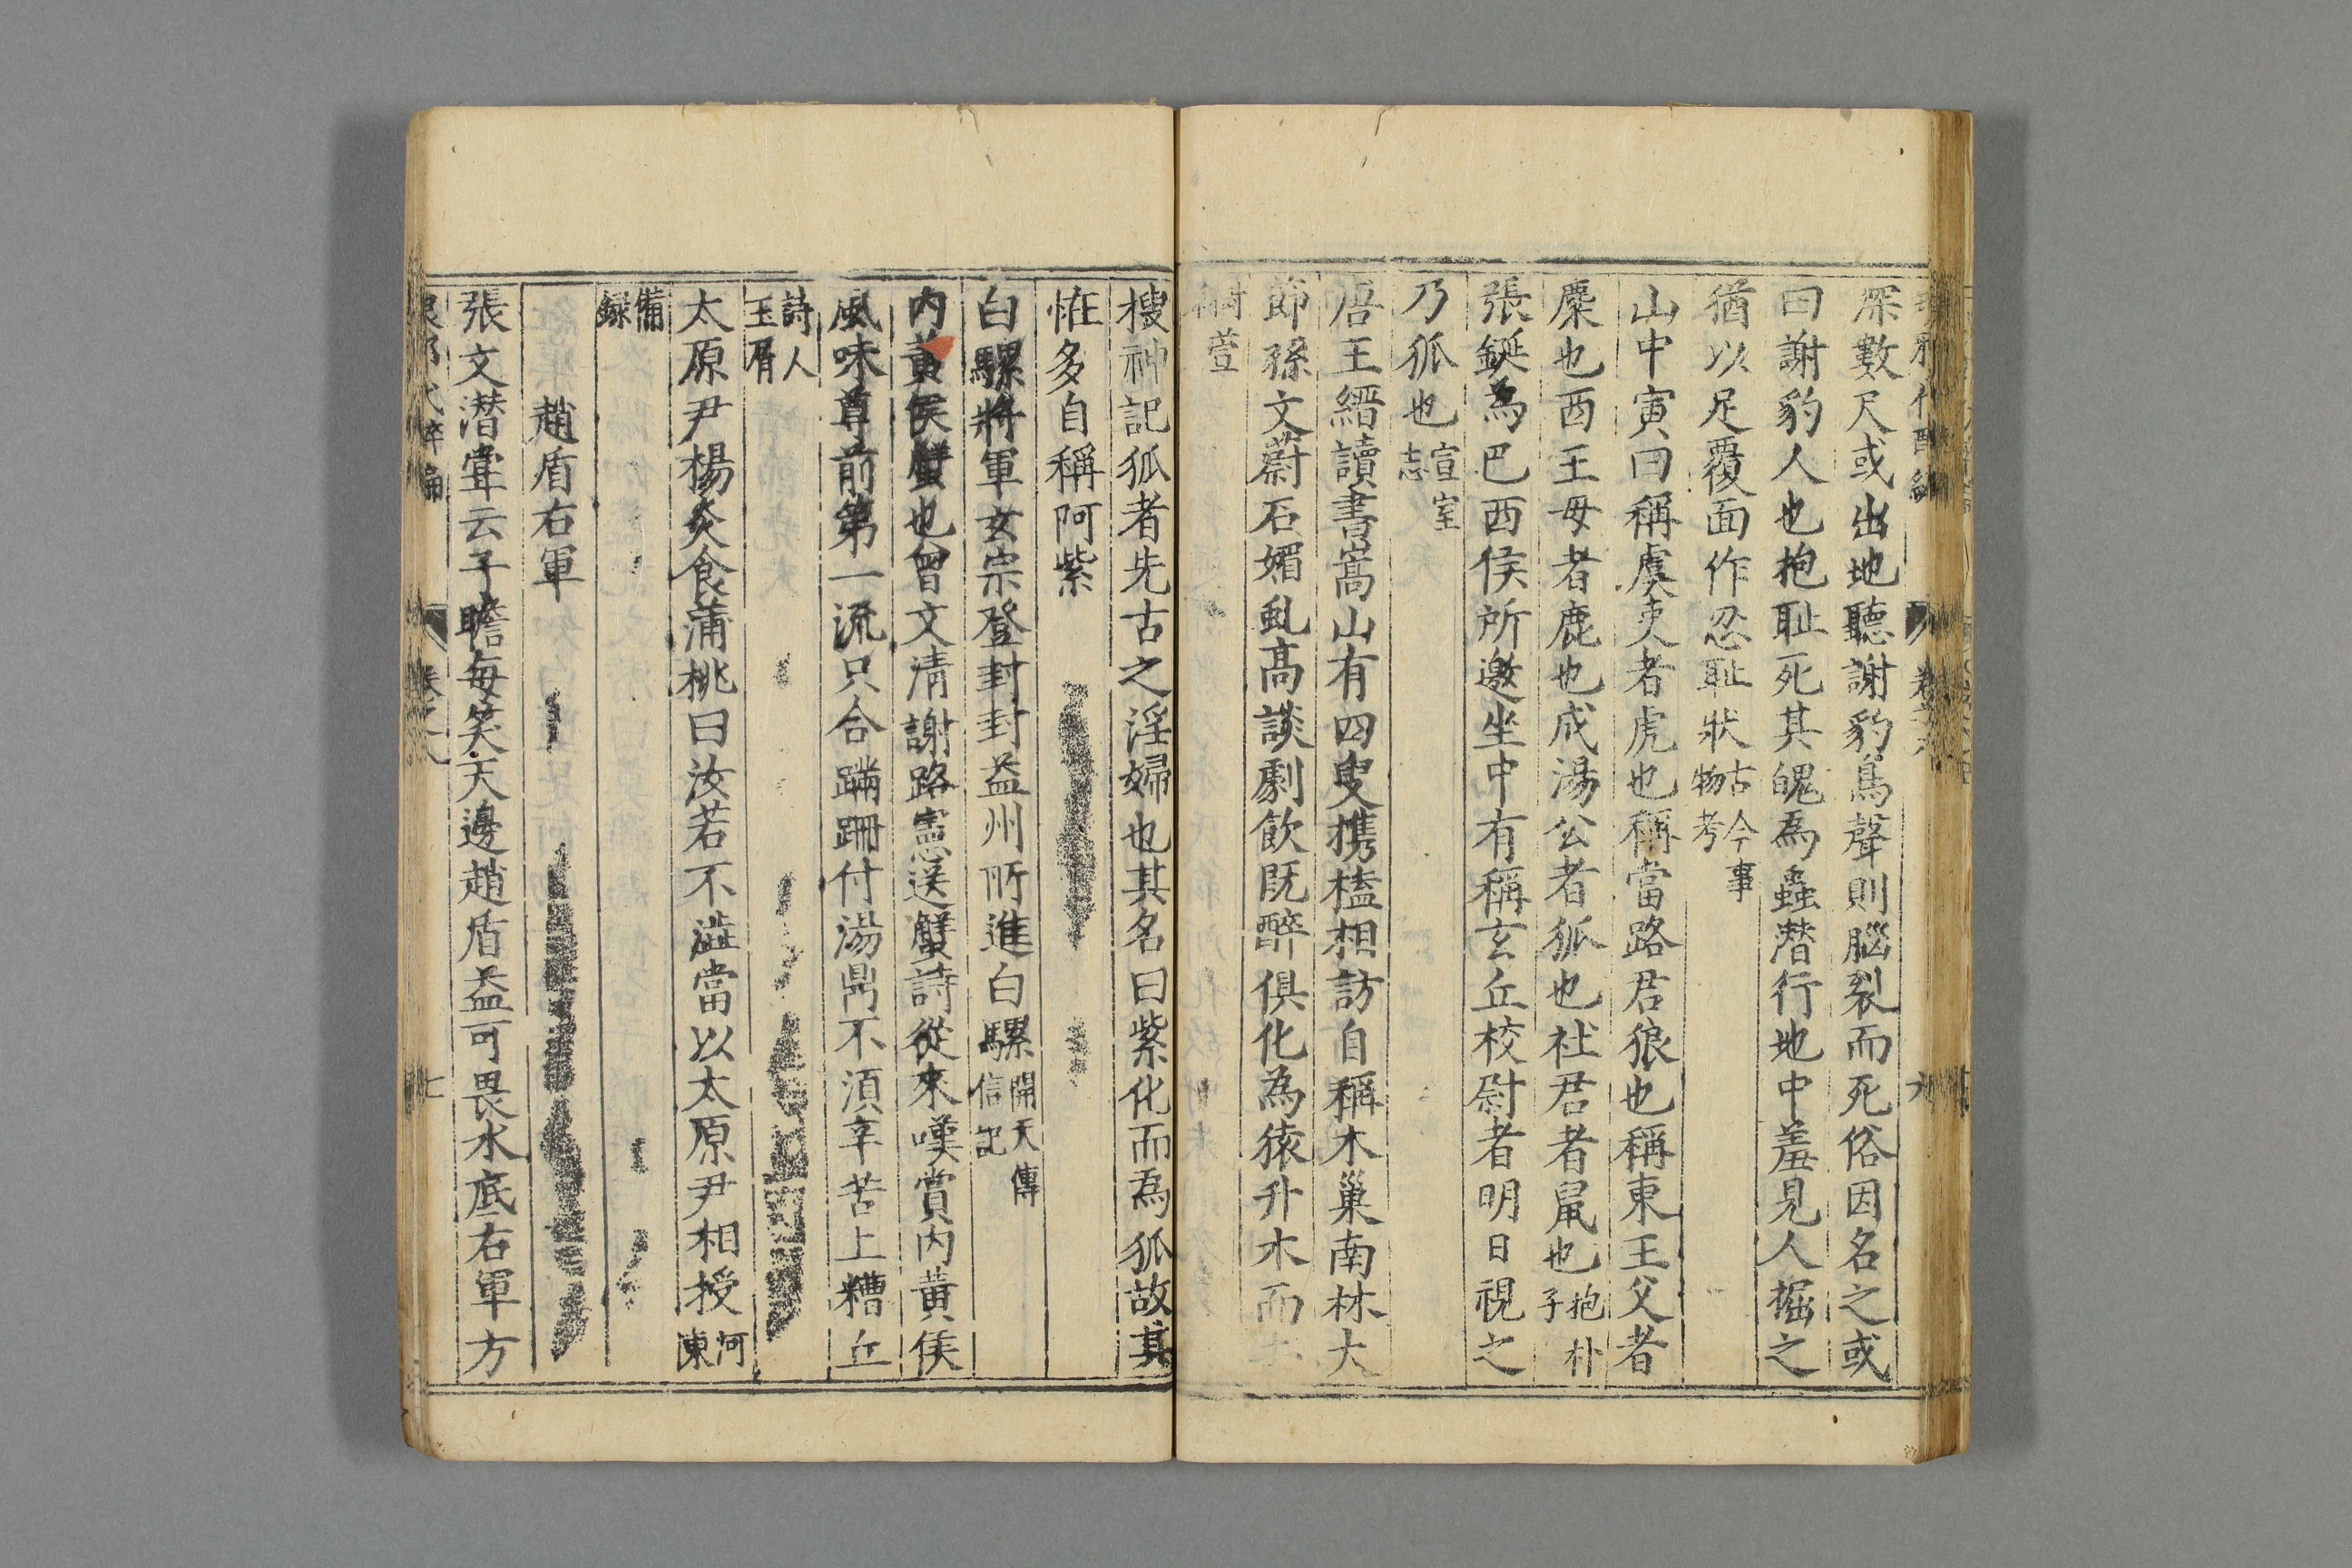 深數尺或出地聽謝豹鳥聲則腦裂而死俗因名之或
曰謝豹人也抱耻死其魄爲蟲潛行地中羞見人掘之
猶以足覆面作忍耻狀古今事物考
山中寅曰稱虞吏者虎也稱當路君狼也稱東王父者
麋也西王母者鹿也成湯公者狐也社君者鼠也抱朴子
張鋋為巴西侯所邀坐中有稱玄丘校尉者明日視之
乃狐也宣室志
唐王縉讀書嵩山有四叟携榼相訪自稱木巢南林大
節孫文蔚石媚虬高談劇飲既醉俱化為猿升木而去
搜神記狐者先古之淫婦也其名曰紫化而爲狐故其
恠多自稱阿紫
白騾將軍玄宗登封封益州所進白騾開天傳信記
内黄侯蟹也曾文清謝路憲送蟹詩從來嘆賞内黄侯
風味尊前第一流只合蹣跚付湯鼎不須辛苦上糟丘
詩人玉屑
太原尹楊炎食蒲桃曰汝若不澁當以太原尹相授河東
備録
趙盾右軍
張文潛嘗云子瞻每笑天邊趙盾益可畏水底右軍方
卷之八
七